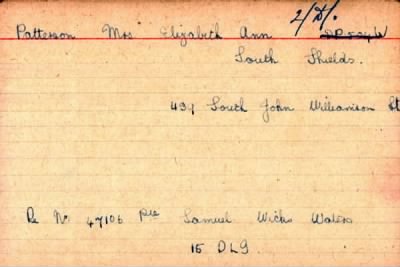 2/D/.
Patterson Mrs Elizabeth Ann
South Shields.
49, South John Williamson St
Re No 47106 Pte Samuel Wicks Waters
15 DLI.